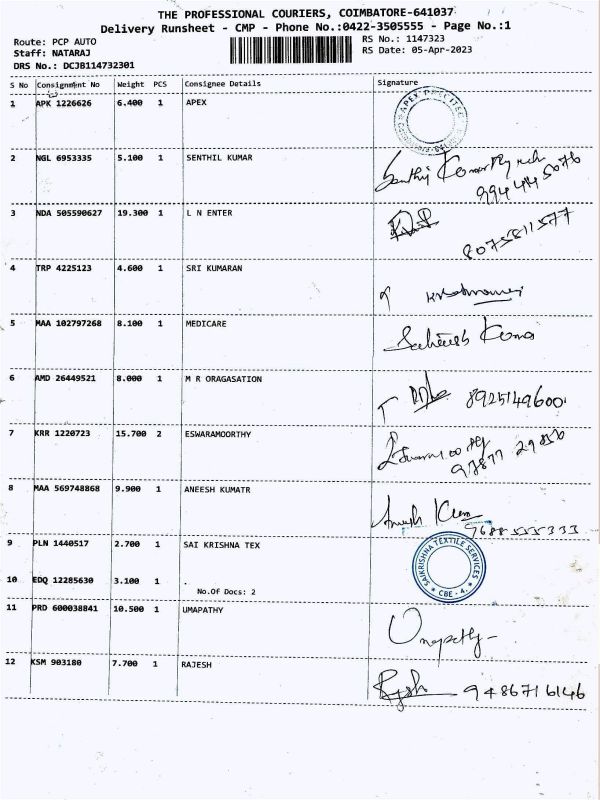 THE PROFESSIONAL COURIERS, COIMBATORE-641037
Delivery Runsheet - CMP - Phone No.:0422-3505555 - Page No.:1
Route: PCP AUTO
Staff: NATARAJ
DRS No.: DCJB114732301
RS No.: 1147323
RS Date: 05-Apr-2023
S No Consignment No Weight PCS Consignee Details Signature
1 APK 1226626 6.400 1 APEX
2 NGL 6953335 5.100 1 SENTHIL KUMAR
9944445076
3 NDA 505590627 19.300 1 L N ENTER
8075811577
4 TRP 4225123 4.600 1 SRI KUMARAN
5 MAA 102797268 8.100 1 MEDICARE
6 AMD 26449521 8.000 1 M R ORAGASATION
8925149600
7 KRR 1220723 15.700 2 ESWARAMOORTHY
8 MAA 569748868 9.900 1 ANEESH KUMATR
9688555333
9 PLN 1440517 2.700 1 SAI KRISHNA TEX
SAIKRISHNA TEXTILE SERVICES
CBE - 4.
10 EDQ 12285630 3.100 1 .
No.Of Docs: 2
11 PRD 600038841 10.500 1 UMAPATHY
Umapathy
12 KSM 903180 7.700 1 RAJESH
9486716146